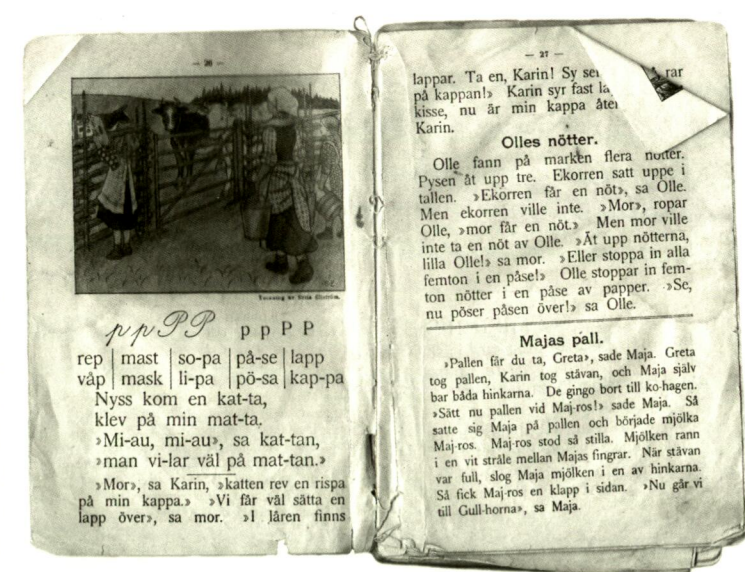 — 26 —
p p P P p p P P
rep | mast | so-pa | på-se | lapp
våp | mask | li-pa | pö-sa | kap-pa
Nyss kom en kat-ta,
klev på min mat-ta.
»Mi-au, mi-au», sa kat-tan,
»man vi-lar väl på mat-tan.»
»Mor», sa Karin, »katten rev en rispa
på min kappa.» »Vi får väl sätta en
lapp över», sa mor. »I låren finns
— 27 —
lappar. Ta en, Karin! Sy rar
på kappan!» Karin syr fast
kisse, nu är min kappa
Karin.
Olles nötter.
Olle fann på marken flera nötter.
Pysen åt upp tre. Ekorren satt uppe i
tallen. »Ekorren får en nöt», sa Olle.
Men ekorren ville inte. »Mor», ropar
Olle, »mor får en nöt.» Men mor ville
inte ta en nöt av Olle. »Ät upp nötterna,
lilla Olle!» sa mor. »Eller stoppa in alla
femton i en påse!» Olle stoppar in fem-
ton nötter i en påse av papper. »Se,
nu pöser påsen över!» sa Olle.
Majas pall.
»Pallen får du ta, Greta», sade Maja. Greta
tog pallen, Karin tog stävan, och Maja själv
bar båda hinkarna. De gingo bort till ko-hagen.
»Sätt nu pallen vid Maj-ros!» sade Maja. Så
satte sig Maja på pallen och började mjölka
Maj-ros. Maj-ros stod så stilla. Mjölken rann
i en vit stråle mellan Majas fingrar. När stävan
var full, slog Maja mjölken i en av hinkarna.
Så fick Maj-ros en klapp i sidan. »Nu gå vi
till Gull-horna», sa Maja.